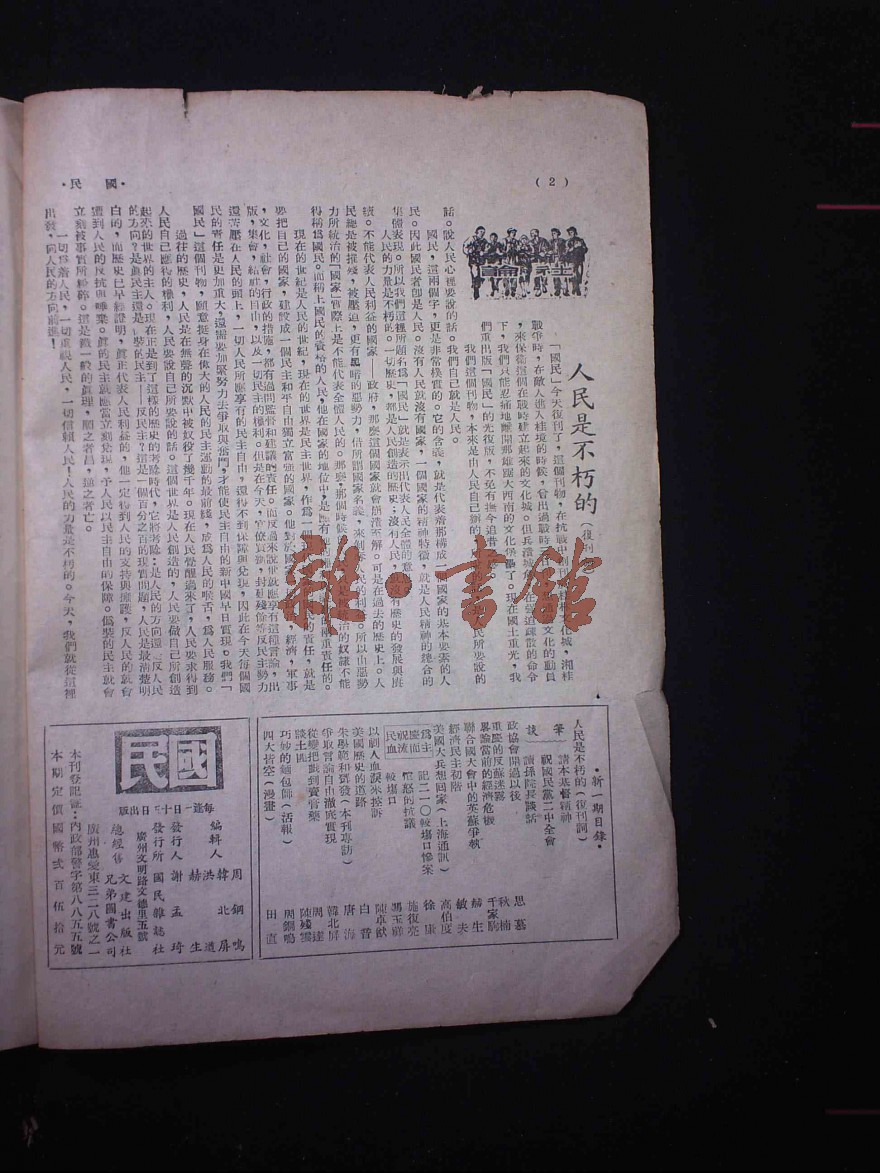 (2)
·國 民·
社論
人民是不朽的(復刊
「國民」今天復刊了,這個刊物,在抗戰中創刊
戰爭時,在敵人進入桂境的時候,曾出過戰時
,來保衛這個在戰時建立起來的文化城。但兵潰城
下,我們只能忍痛地離開那雄踞大西南的文化堡壘了。現在國土重光,我
們重出版「國民」的光復版,不免有撫今追昔
我們這個刊物,本來是由人民自己辦的,
話。說人民心裡要說的話。我們自己就是人民。
國民,這兩個字,更是非常樸實的。它的含義,就是代表着那構成一
民。因此國民者卽是人民。沒有人民就沒有國家,一個國家的精神特徵,就是人民精神的總合的
集體表現。所以我們這裡所題名爲「國民」就是表示出代表人民全體的意
人民的力量是不朽的。一切歷史,都是人民創造的歷史;沒有人民,就沒有歷史的發展與成
績。不能代表人民利益的國家——政府,那麼這個國家就會崩潰瓦解。可是在過去的歷史上。人
民總是被摧殘,被壓迫,更有黑暗的惡勢力,借所謂國家名義,來
力所統治的「國家」實際上是不能代表全體人民的。那麼,那個時候
得稱爲國民。而稱上國民的資格的人民,他在國家的地位中,是應有
現在的世紀是人民的世紀,現在的世界是民主世界,作爲一個
要把自己的國家,建設成一個民主和平自由獨立富强的國家。他對於國家
,文化,社會,行政的措施,都有過問監督和建議的責任。而反過來說他就應享有這種言論,出
版,集會,結社的自由,以及一切民主的權利。但是在今天,官僚買辦,封建殘餘等反民主勢力
還苦壓在人民的頭上,一切人民所應享有的民主自由,還得不到保障與兌現,因此在今天每個國
民的責任是更加重大,還需要加緊努力去爭取與奮鬥,才能使民主自由的新中國早日實現。我們「
國民」這個刊物,願意挺身在偉大的人民的民主運動的最前綫,成爲人民的喉舌,爲人民服務。
過往的歷史,人民是在無聲的沉默中被奴役了幾千年。現在人民覺醒過來了,人民要求得到
人民自己應得的權利,人民要說自己所要說的話。這個世界是人民創造的,人民要做自己所創造
起來的世界的主人。現在正是到了這樣的歷史的考驗時代,它將考驗:是人民的方向還是反人民
的方向?是眞民主還是僞裝的民主——反民主?這是一個百分之百的現實問題,人民是最清楚明
白的,而歷史已早經證明,眞正代表人民利益的,他一定得到人民的支持與擁護,反人民的就會
遭到人民的反抗與唾棄。眞的民主就應當立刻兌現,予人民以民主自由的保障。僞裝的民主就會
立刻被事實所粉碎。這是鐵一般的眞理,順之者昌,逆之者亡。
一切爲着人民,一切重視人民,一切信賴人民!人民的力量是不朽的。今天,我們就從這裡
出發,向人民的方向前進!
·新一期目錄·
人民是不朽的(復刊詞)
筆談
請本基督精神 思慕
祝國民黨二中全會 秋楠
讀孫院長談話 千家駒
政協會開過以後 赫生
重慶的反蘇迷霧 敏夫
畧論當前的經濟危機 高伯度
聯合國大會中的英蘇爭執 徐康
經濟民主初階 施復亮
美國大兵想回家(上海通訊) 馮玉祥
爲民主而流血慶祝
記二一〇較塲口慘案
較塲口
憤怒的抗議 陳卓猷
以創人血淚來控訴 白普
美國歷史的道路 唐海
朱學範和鄧發(本刊專訪) 韓北屏
爭取言論自由澈底實現 周達
從變把戲到賣膏藥 陳殘雲
談土匪 周鋼鳴
巧妙的麵包師(活報)
四大皆空(漫畫) 田直
國民
每逢一日十五日出版
編輯人 周鋼鳴 韓北屏 洪遒 赫生
發行人 謝孟琦
發行所 國民雜誌社
廣州文明路文德里五號
總經售 文建出版社 兄弟圖書公司
廣州惠愛東三二八號之一
本刊登記證:內政部警字第八八五五號
本期定價國幣弍百伍拾元
雜·書館